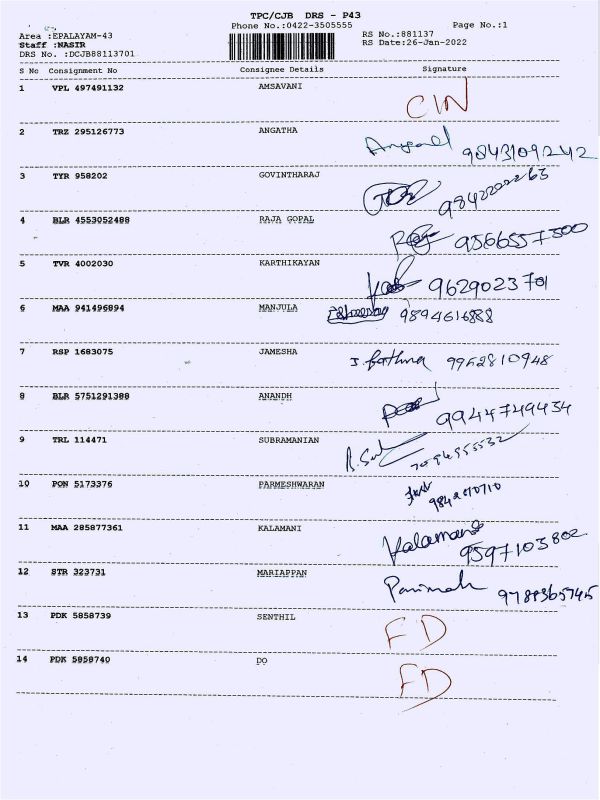 TPC/CJB DRS - P43
Phone No.:0422-3505555 Page No.:1
Area :EPALAYAM-43 RS No.:881137
Staff :NASIR RS Date:26-Jan-2022
DRS No. :DCJB88113701
S No Consignment No Consignee Details Signature
1 VPL 497491132 AMSAVANI CIN
2 TRZ 295126773 ANGATHA 9843109242
3 TYR 958202 GOVINTHARAJ
4 BLR 4553052488 RAJA GOPAL 9566557300
5 TVR 4002030 KARTHIKAYAN 9629023701
6 MAA 941496894 MANJULA 9894616888
7 RSP 1683075 JAMESHA J. fathima 9952810948
8 BLR 5751291388 ANANDH 9944749434
9 TRL 114471 SUBRAMANIAN 7094555532
10 PON 5173376 PARMESHWARAN
11 MAA 285877361 KALAMANI Kalamani 9597103802
12 STR 323731 MARIAPPAN
13 PDK 5858739 SENTHIL FD
14 PDK 5858740 DO FD